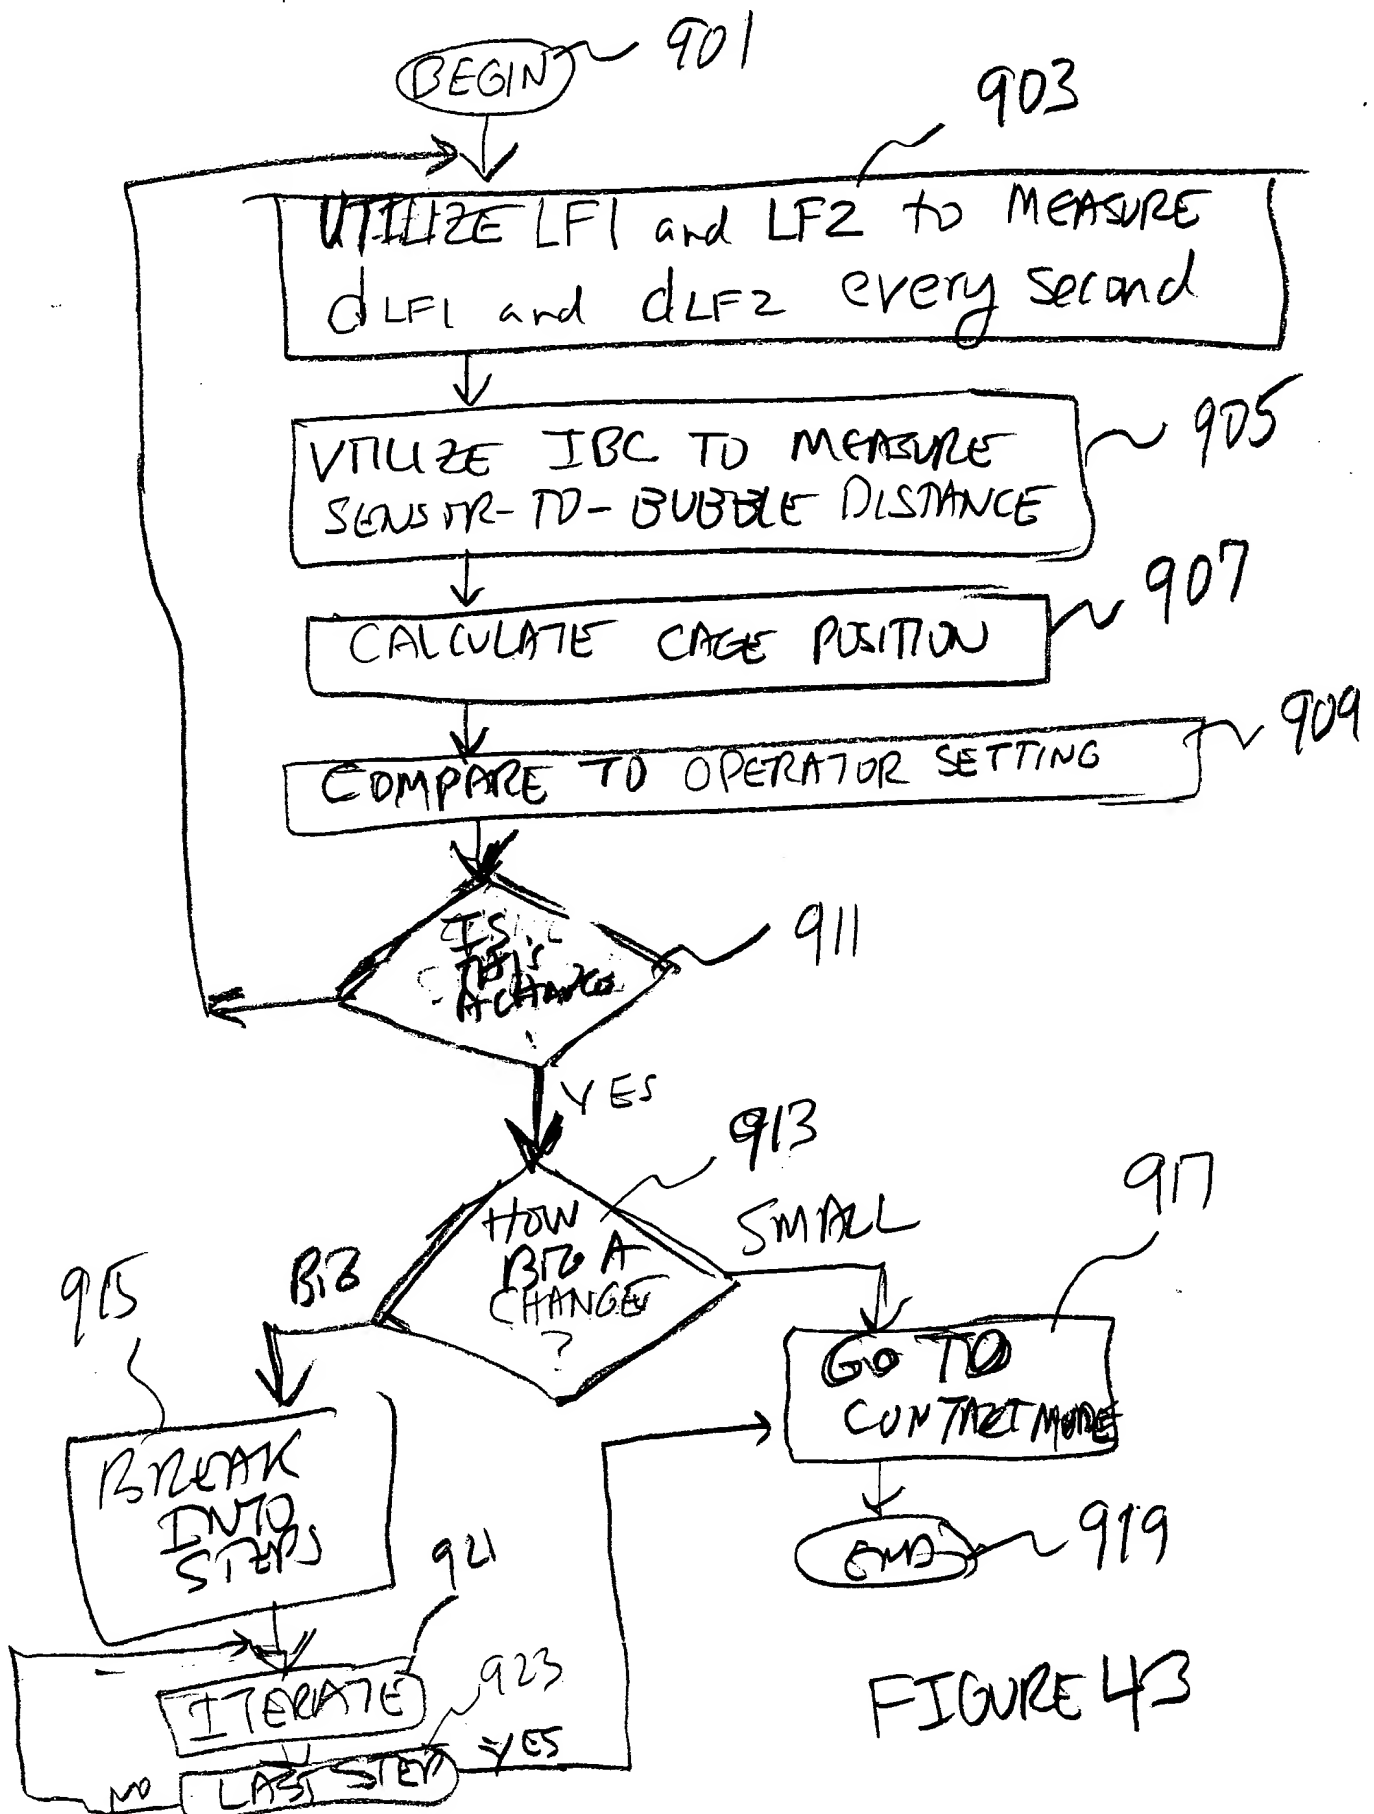 BEGIN
901
903
UTILIZE LF1 and LF2 to MEASURE
dLF1 and dLF2 every second
905
UTILIZE IBC TO MEASURE
SENSOR-TO-BUBBLE DISTANCE
907
CALCULATE CAGE POSITION
909
COMPARE TO OPERATOR SETTING
911
IS
THIS
A CHANGE
YES
913
HOW
BIG A
CHANGE
?
SMALL
BIG
917
915
GO TO
CONTACT MODE
BREAK
INTO
STEPS
919
END
921
ITERATE
923
YES
NO
LAST STEP
FIGURE 43